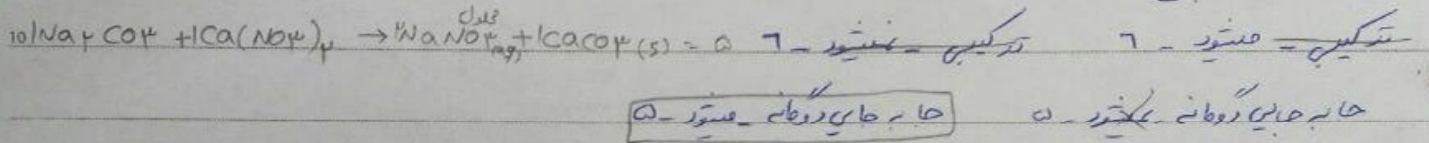 10) 1Na۲CO۳ + 1Ca(NO۳)۲ → ۲NaNO۳(aq) محلول + 1CaCO۳(s) = ۵ ترکیبی - نمیشود - ٦ ترکیبی - میشود - ٦
جا به جایی دوگانه - میشود - ۵ جا به جایی دوگانه - نمیشود - ۵